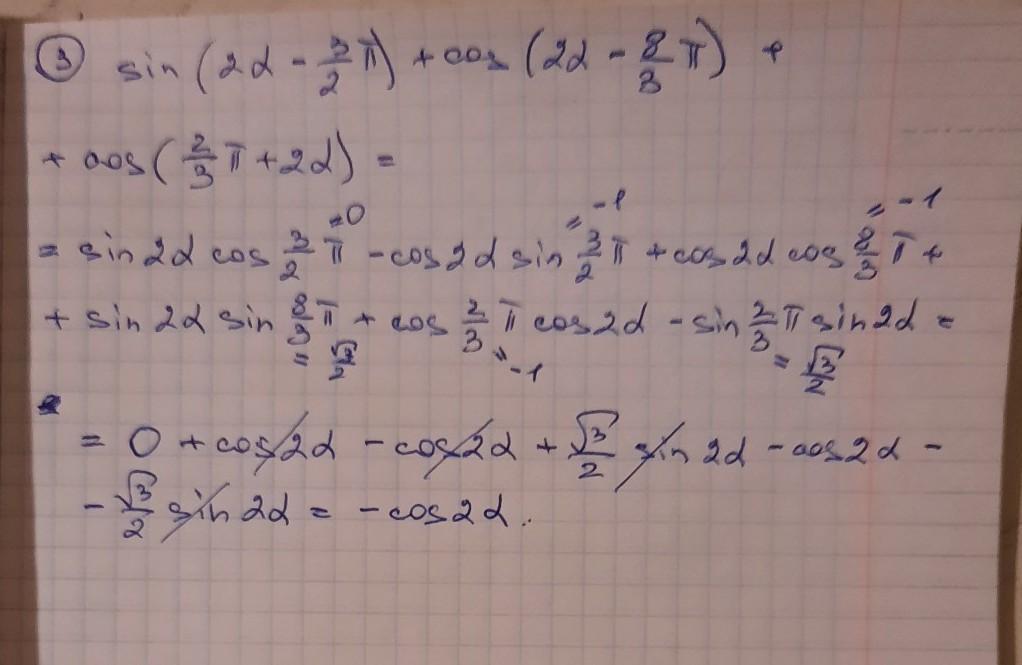 ③ sin (2α - 3/2 π) + cos (2α - 8/3 π) +
+ cos (2/3 π + 2α) =
=0 = -1 = -1
= sin 2α cos 3/2 π - cos 2α sin 3/2 π + cos 2α cos 8/3 π +
+ sin 2α sin 8/3 π + cos 2/3 π cos 2α - sin 2/3 π sin 2α =
= √3/2 = -1 = √3/2
= 0 + cos 2α - cos 2α + √3/2 sin 2α - cos 2α -
- √3/2 sin 2α = - cos 2α.